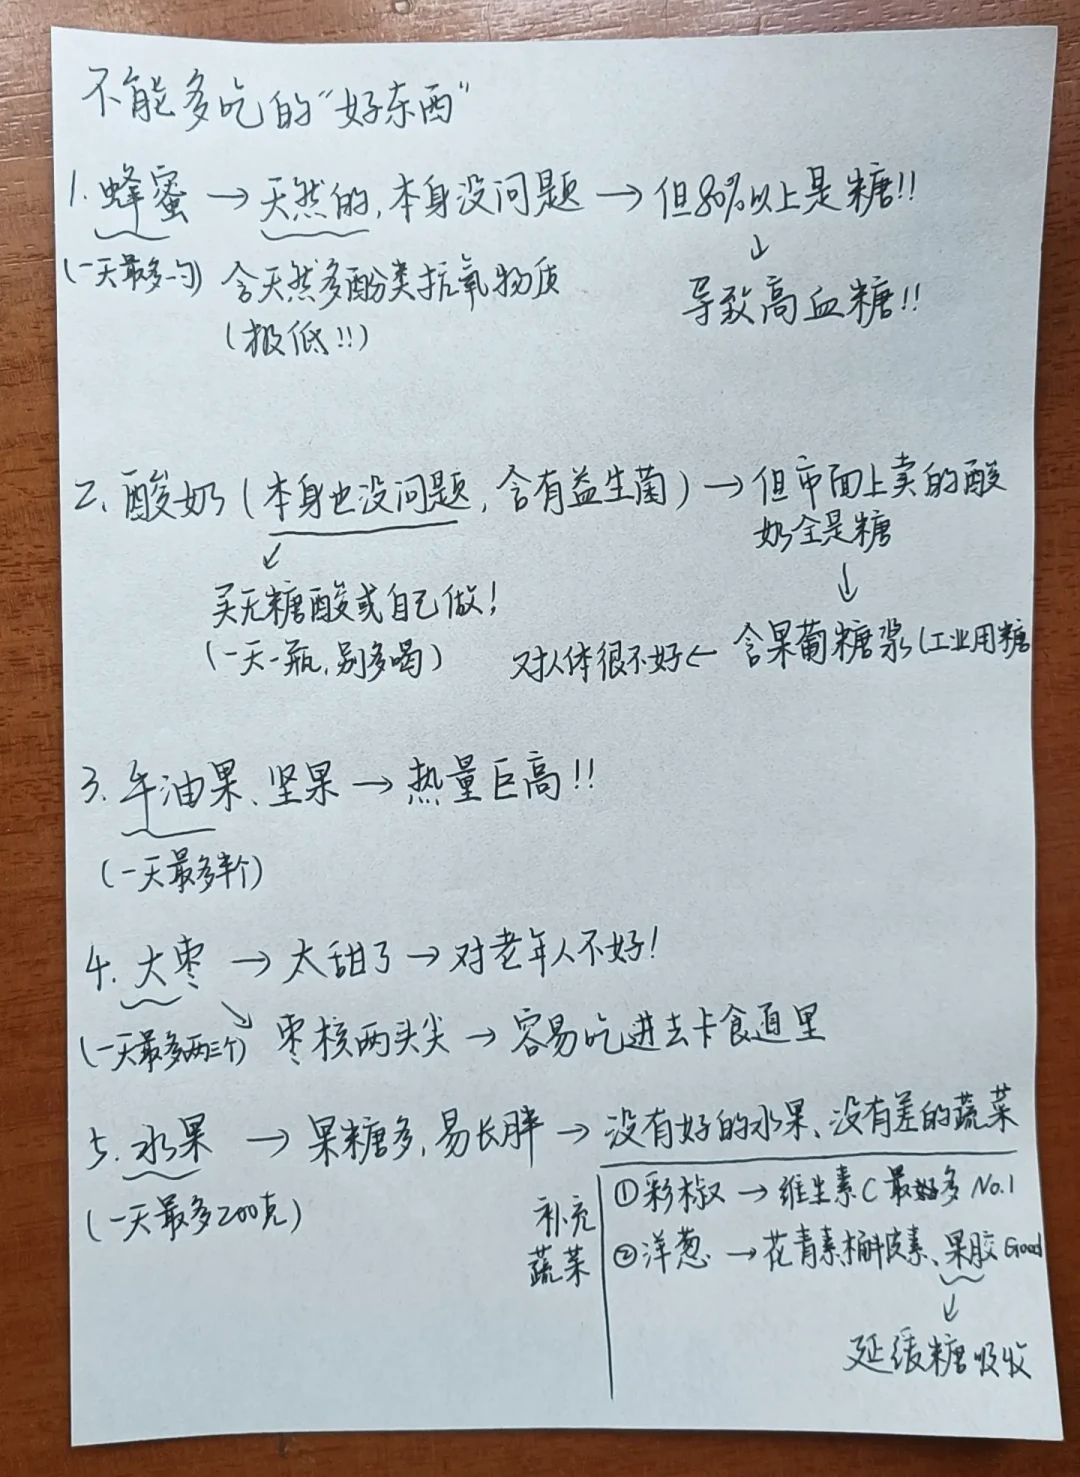 不能多吃的“好东西”
1. 蜂蜜 → 天然的,本身没问题 → 但80%以上是糖!!
(一天最多一勺) 含天然多酚类抗氧物质
(极低!!)
↓
导致高血糖!!
2. 酸奶(本身也没问题,含有益生菌) → 但市面上卖的酸
奶全是糖
↙
买无糖酸或自己做!
(一天一瓶,别多喝)
↓
对人体很不好 ← 含果葡糖浆(工业用糖
3. 牛油果、坚果 → 热量巨高!!
(一天最多半个)
4. 大枣 → 太甜了 → 对老年人不好!
(一天最多两三个) ↘ 枣核两头尖 → 容易吃进去卡食道里
5. 水果 → 果糖多,易长胖 → 没有好的水果、没有差的蔬菜
(一天最多200克)
补充
蔬菜
①彩椒 → 维生素C最多 No.1
②洋葱 → 花青素、槲皮素、果胶 Good
↓
延缓糖吸收